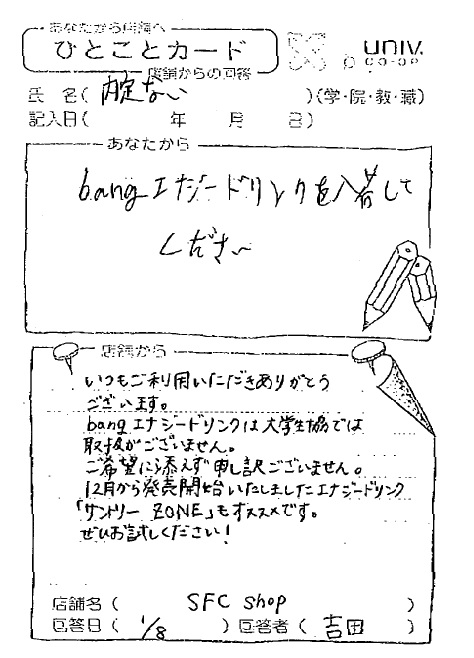 あなたから店舗へ
ひとことカード
店舗からの回答
UNIV.
CO-OP
氏 名( 内定ない )(学・院・教・職)
記入日( 年 月 日)
あなたから
bang エナジードリンクを入荷して
ください
店舗から
いつもご利用いただきありがとう
ございます。
bang エナジードリンクは大学生協では
取扱がございません。
ご希望に添えず申し訳ございません。
12月から発売開始いたしましたエナジードリンク
「サントリー ZONE」もオススメです。
ぜひお試しください!
店舗名( SFC shop )
回答日( 1/8 )回答者( 吉田 )